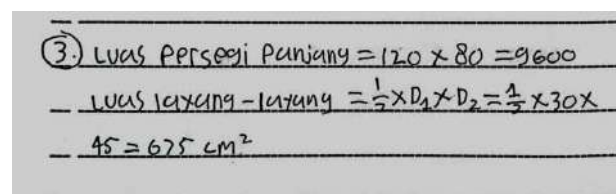 3.) Luas Persegi Panjang = 120 x 80 = 9600
Luas layang-layang = 1/2 x D1 x D2 = 1/2 x 30 x
45 = 675 cm²